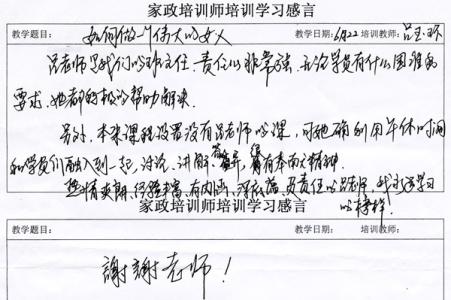 家政培训师培训学习感言
教学题目： 如何做一个伟大的女人 教学日期：6月22 培训教师：吕玉环
吕老师是我们的班主任，责任心非常强，无论学员有什么困难和
要求，她都积极的帮助解决。
另外，本来课程设置没有吕老师的课，可她确利用午休时间
和学员们融入到一起，讨论、讲解
热情爽朗、经验丰富、有内涵、负责任的吕老师，我永远学习
的榜样！
家政培训师培训学习感言
教学题目： 教学日期： 培训教师：
謝謝老师！